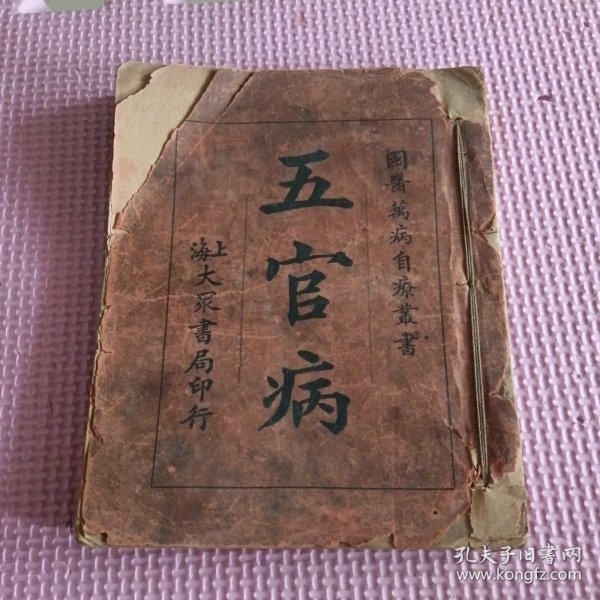 國醫萬病自療叢書
五官病
上海大眾書局印行
孔夫子旧書网
www.kongfz.com